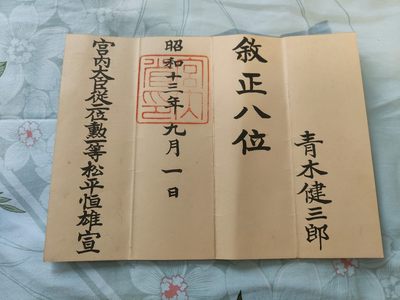 青木健三郎
敘正八位
昭和十三年九月一日
宮内大臣従二位勲一等松平恒雄宣
宮内省印